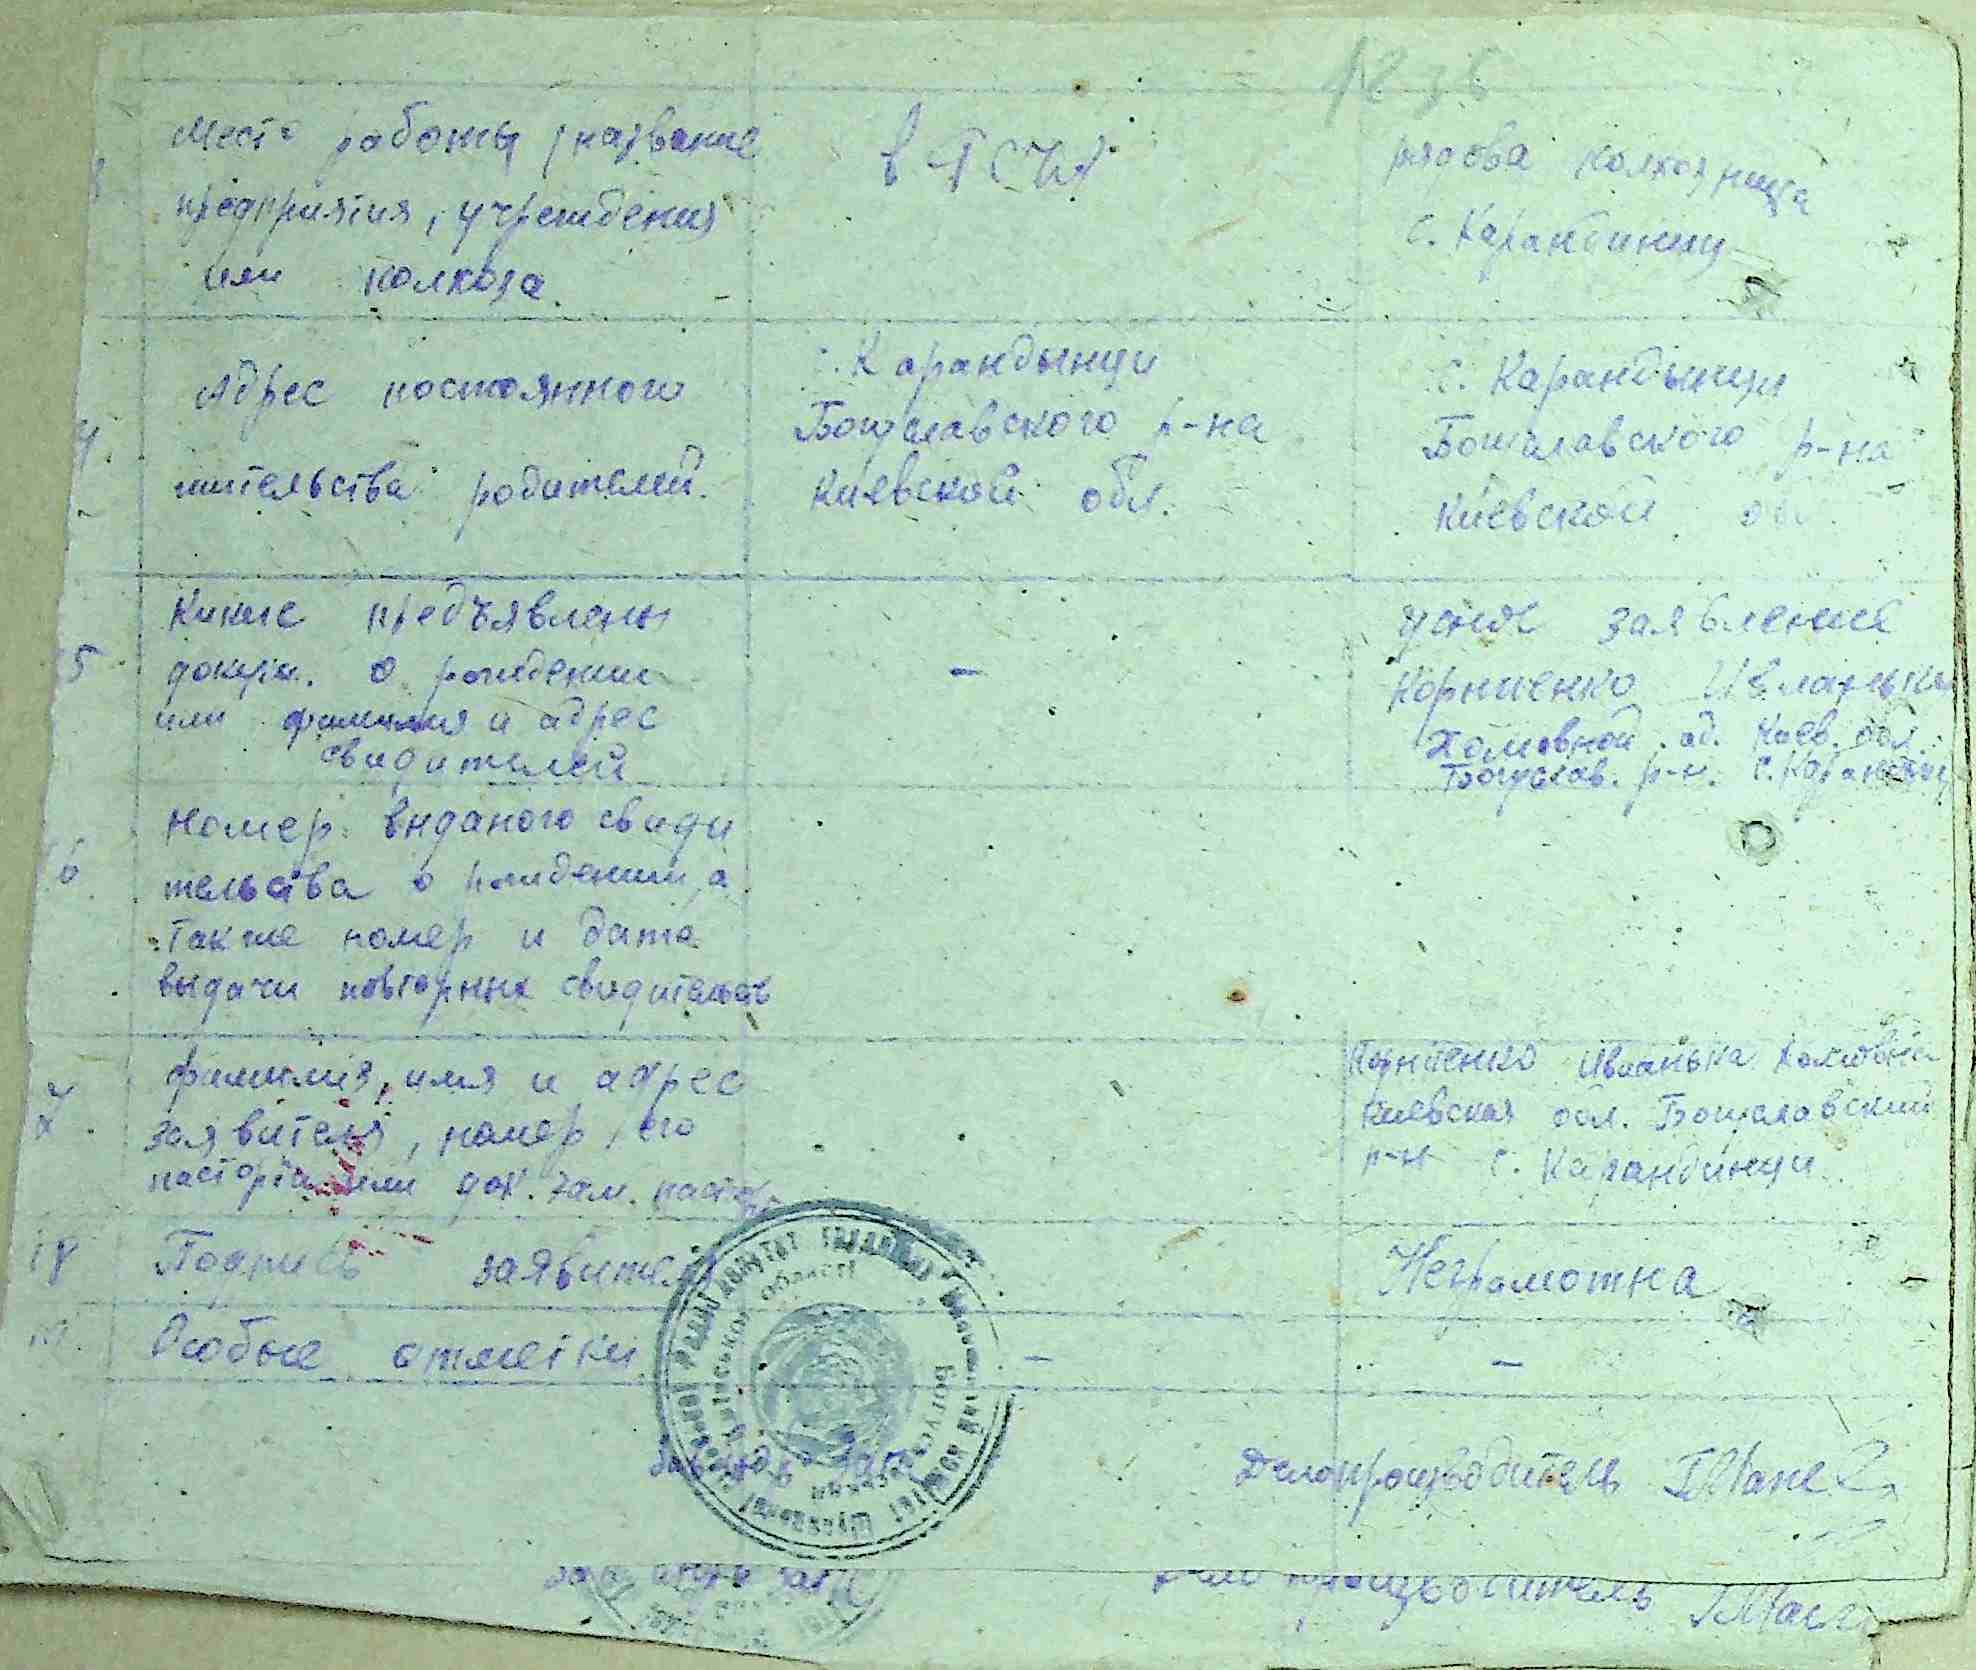 Место работы (название
предприятия, учреждения
или колхоза.
в РСЧА
рядова колхозница
с. Карандинци
4.
Адрес постоянного
жительства родителей.
с. Карандынци
Богуславского р-на
киевской обл.
с. Карандынци
Богуславского р-на
киевской обл.
15
Какие предъявлены
докум. о рождении
или фамилия и адрес
свидителей
-
устное заявление
Корниенко
Хомовной ад. Киев. обл.
Богуслав. р-н. с. Карандынци
16
номер выданого свиди
тельства о рождении, а
также номер и дата
выдачи повторных свидительств
17.
фамилия, имя и адрес
заявителя, номер его
паспорта или док. зам. паспорт
Корниенко Хомовна
Киевская обл. Богуславский
р-н с. Карандинци
18
Подпись заявителя
Неграмотна
Особые отметки
-
-
Делопроизводитель
Делопроизводитель